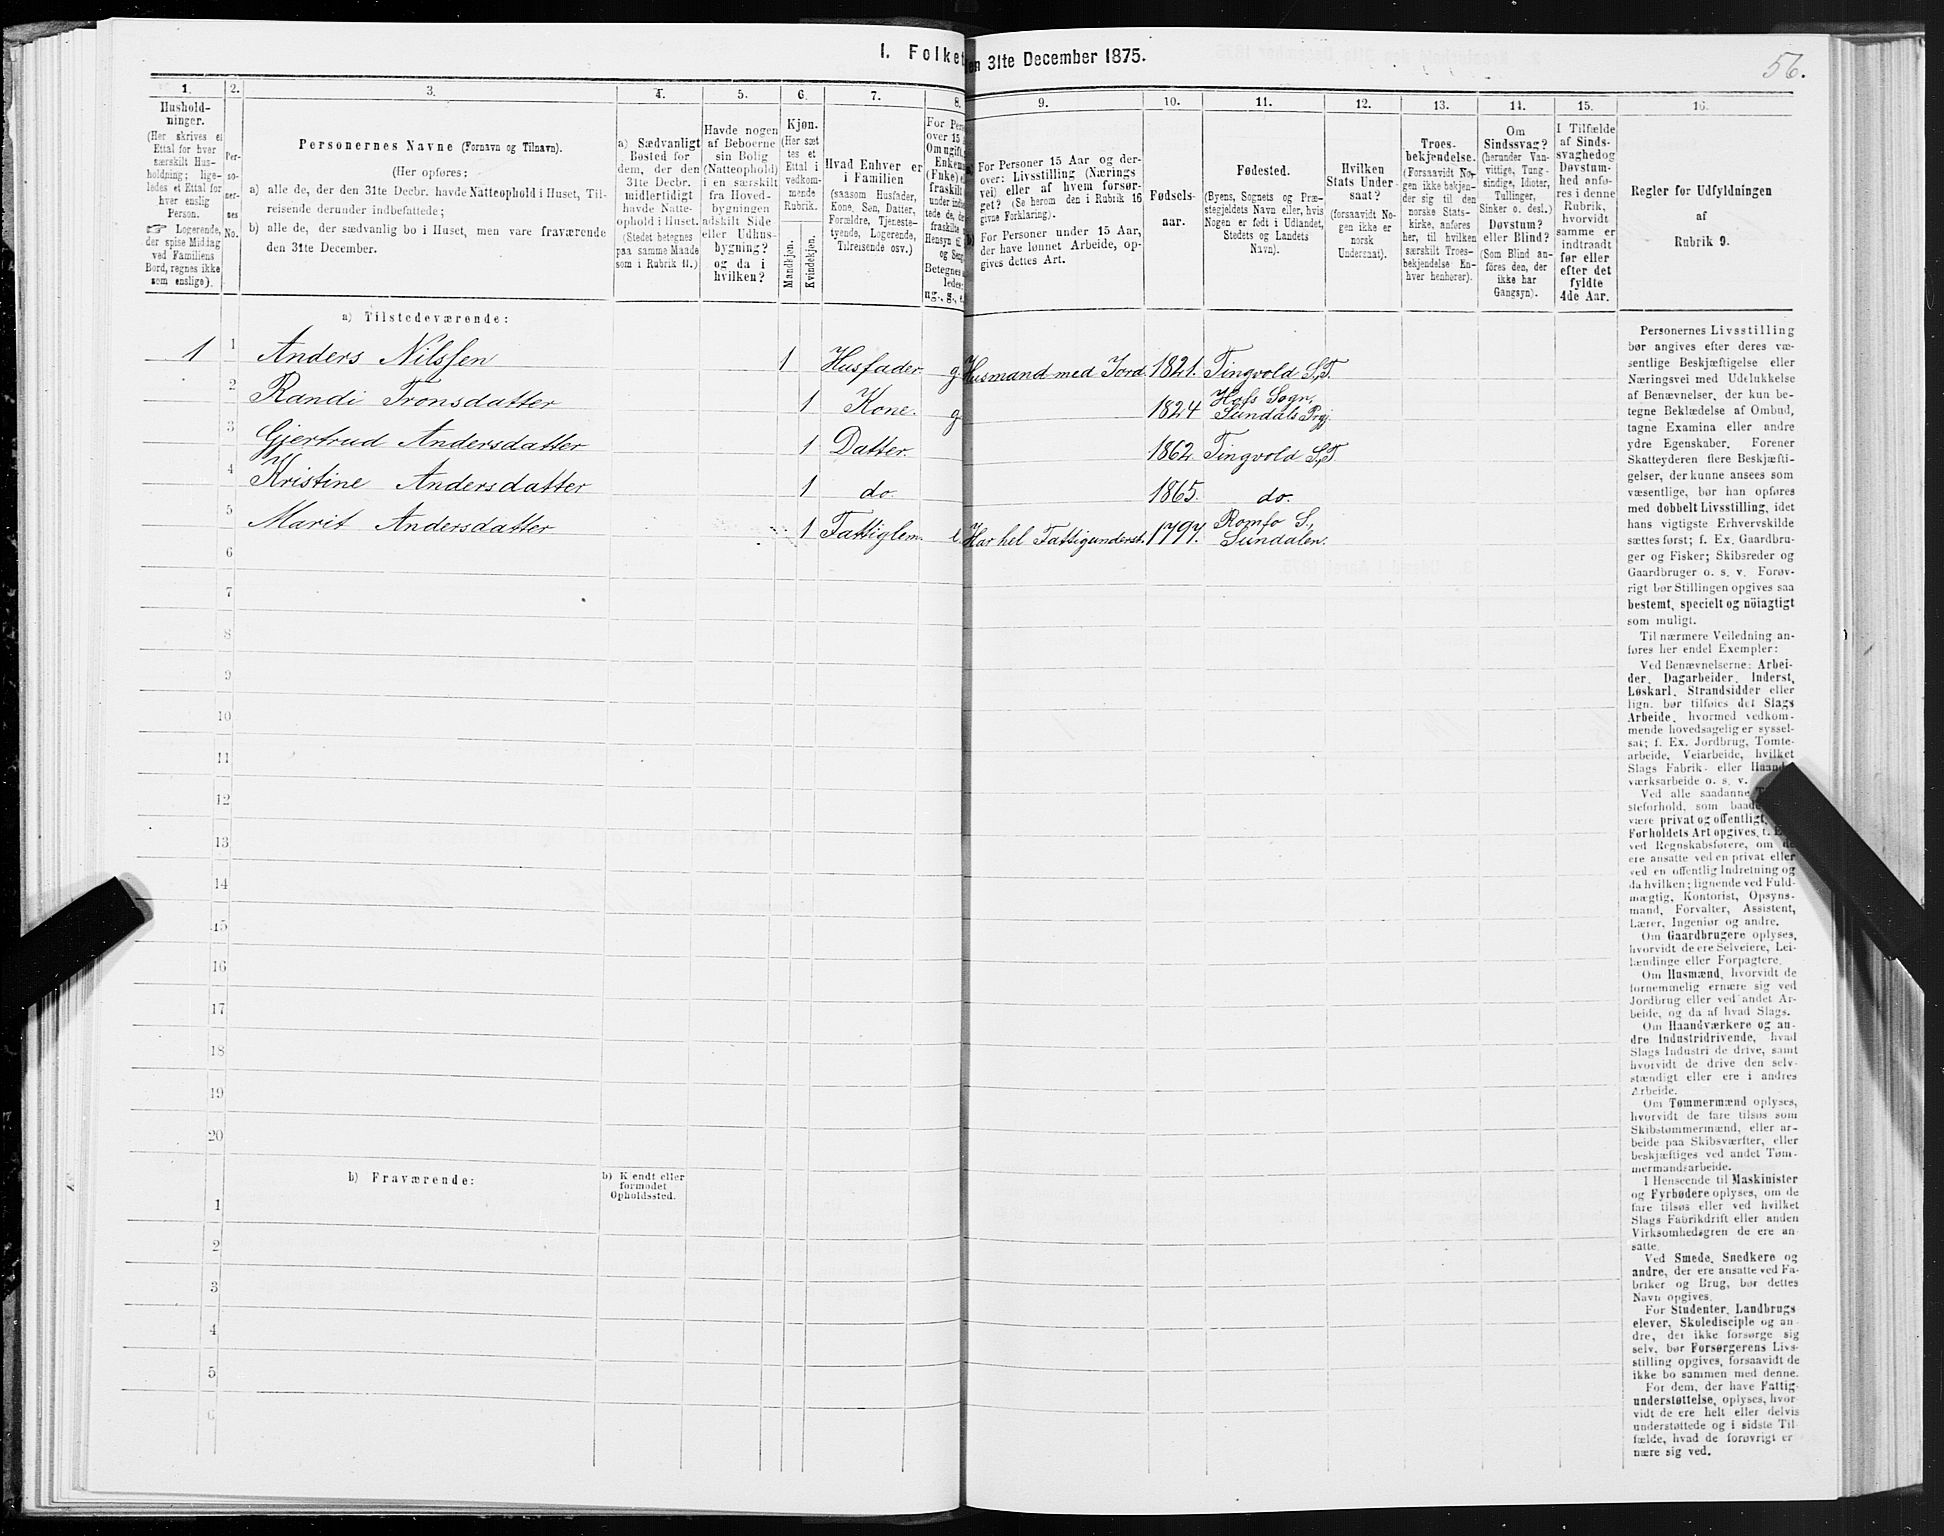 I. Folket
en 31te December 1875.
56.
1.
2.
3.
4.
5.
6.
7.
8.
9.
10.
11.
12.
13.
14.
15.
16.
Hushold-
ninger.
(Her skrives et
Ettal for hver
særskilt Hus-
holdning; lige-
ledes et Ettal for
hver enslig
Person.
☞ Logerende,
der spise Middag
ved Familiens
Bord, regnes ikke
som enslige).
Per-
so-
ner-
nes
No.
Personernes Navne (Fornavn og Tilnavn).
(Her opføres:
a) alle de, der den 31te Decbr. havde Natteophold i Huset, Til-
reisende derunder indbefattede;
b) alle de, der sædvanlig bo i Huset, men vare fraværende
den 31te December.
a) Sædvanligt
Bosted for
dem, der den
31te Decbr.
midlertidigt
havde Natte-
ophold i Huset.
(Stedet betegnes
paa samme Maade
som i Rubrik 11.)
Havde nogen
af Beboerne
sin Bolig
(Natteophold)
i en særskilt
fra Hoved-
bygningen
adskilt Side
eller Udhus-
bygning?
og da i
hvilken?
Kjøn.
(Her sæt
tes et
Ettal i
vedkom-
mende
Rubrik.
Mandkjøn.
Kvindekjøn.
Hvad Enhver er
i Familien
(saasom Husfader,
Kone, Søn, Datter,
Forældre, Tjeneste-
tyende, Logerende,
Tilreisende osv.)
For Pers
over 15 a
Om ugift,
Enkem
(Enke) e
fraskilt
under indt
tede de, de
fraskilte
Hensyn til
og Seng
Betegnes s
ledes:
ug., g., e.
a) For Personer 15 Aar og der-
over: Livsstilling (Nærings
vei) eller af hvem forsør-
get? (Se herom den i Rubrik 16
givne Forklaring).
b) For Personer under 15 Aar,
der have lønnet Arbeide, op-
gives dettes Art.
Fødsels-
aar.
Fødested.
(Byens, Sognets og Præ-
stegjeldets Navn eller, hvis
Nogen er født i Udlandet,
Stedets og Landets
Navn).
Hvilken
Stats Under-
saat?
(forsaavidt No-
gen ikke er
norsk
Undersaat).
Troes-
bekjendelse.
(Forsaavidt No-
gen ikke bekjen-
der sig til den
norske Stats-
kirke, anføres
her, til hvilken
særskilt Troes-
bekjendelse En-
hver henhører).
Om
Sindssvag?
(herunder Van-
vittige, Tung-
sindige, Idioter,
Tullinger,
Sinker o. desl.)
Døvstum?
eller Blind?
(Som Blind an-
føres den, der
ikke har
Gangsyn).
I Tilfælde
af Sinds-
svaghedog
Døvstum-
hed anfø-
res i denne
Rubrik,
hvorvidt
samme er
indtraadt
før eller
efter det
fyldte
4de Aar.
Regler for Udfyldningen
af
Rubrik 9.
a) Tilstedeværende:
1 1 Anders Nilssen 1 Husfader g. Husmand med Jord. 1821. Tingvold S,T.
2 Randi Tronsdatter 1 Kone. g 1824 Hofs Sogn, Sundals Prgj
3 Gjertrud Andersdatter 1 Datter. 1862. Tingvold S,T
4 Kristine Andersdatter 1 do. 1865. do.
5 Marit Andersdatter 1 Fattiglem. e. Har hel Fattigunderst. 1797. Romfo S., Sundalen.
6
7
8
9
10
11
12
13
14
15
16
17
18
19
20
b) Fraværende:
b) Kjendt eller
formodet
Opholdssted.
1
2
3
4
5
6
Personernes Livsstilling
bør angives efter deres væ-
sentlige Beskjæftigelse eller
Næringsvei med Udelukkelse
af Benævnelser, der kun be-
tegne Beklædelse af Ombud,
tagne Examina eller andre
ydre Egenskaber. Forener
Skatteyderen flere Beskjæfti-
gelser, der kunne ansees som
væsentlige, bør han opføres
med dobbelt Livsstilling, idet
hans vigtigste Erhvervskilde
sættes først; f. Ex. Gaardbru-
ger og Fisker; Skibsreder og
Gaardbruger o. s. v. Forøv-
rigt bør Stillingen opgives saa
bestemt, specielt og nöiagtigt
som muligt.
Til nærmere Veiledning an-
føres her endel Exempler:
Ved Benævnelserne: Arbei-
der, Dagarbeider, Inderst,
Løskarl, Strandsidder eller
lign. bør tilføies det Slags
Arbeide, hvormed vedkom-
mende hovedsagelig er syssel-
sat; f. Ex. Jordbrug, Tomte-
arbeide, Veiarbeide, hvilket
Slags Fabrik- eller Haand-
værksarbeide o. s. v.
Ved alle saadanne
steforhold, som baade
være privat og offentligt,
Forholdets Art opgives, f. Ex.
ved Regnskabsførere, om de
ere ansatte ved en privat eller
ved en offentlig Indretning og
da hvilken; lignende ved Fuld-
mægtig, Kontorist, Opsyns-
mand, Forvalter, Assistent,
Lærer, Ingeniør og andre.
Om Gaardbrugere oplyses,
hvorvidt de ere Selveiere, Lei-
lændinge eller Forpagtere.
Om Husmænd, hvorvidt de
fornemmelig ernære sig ved
Jordbrug eller ved andet Ar-
beide, og da af hvad Slags.
Om Haandværkere og an-
dre Industridrivende, hvad
Slags Industri de drive, samt
hvorvidt de drive den selv-
stændigt eller ere i andres
Arbeide.
Om Tømmermænd oplyses,
hvorvidt de fare tilsøs som
Skibstømmermænd, eller ar-
beide paa Skibsværfter, eller
beskjæftiges ved andet Tøm-
mermandsarbeide.
I Henseende til Maskinister
og Fyrbødere oplyses, om de
fare tilsøs eller ved hvilket
Slags Fabrikdrift eller anden
Virksomhedsgren de ere an-
satte.
Ved Smede, Snedkere og
andre, der ere ansatte ved Fa-
briker og Brug, bør dettes
Navn opgives.
For Studenter, Landbrugs
elever, Skoledisciple og an-
dre, der ikke forsørge sig
selv, bør Forsørgerens Livs-
stilling opgives, forsaavidt de
ikke bo sammen med denne.
For dem, der have Fattig-
understøttelse, oplyses, hvor-
vidt de ere helt eller delvis
understøttede og i sidste Til-
fælde, hvad de forøvrigt er
nære sig ved.